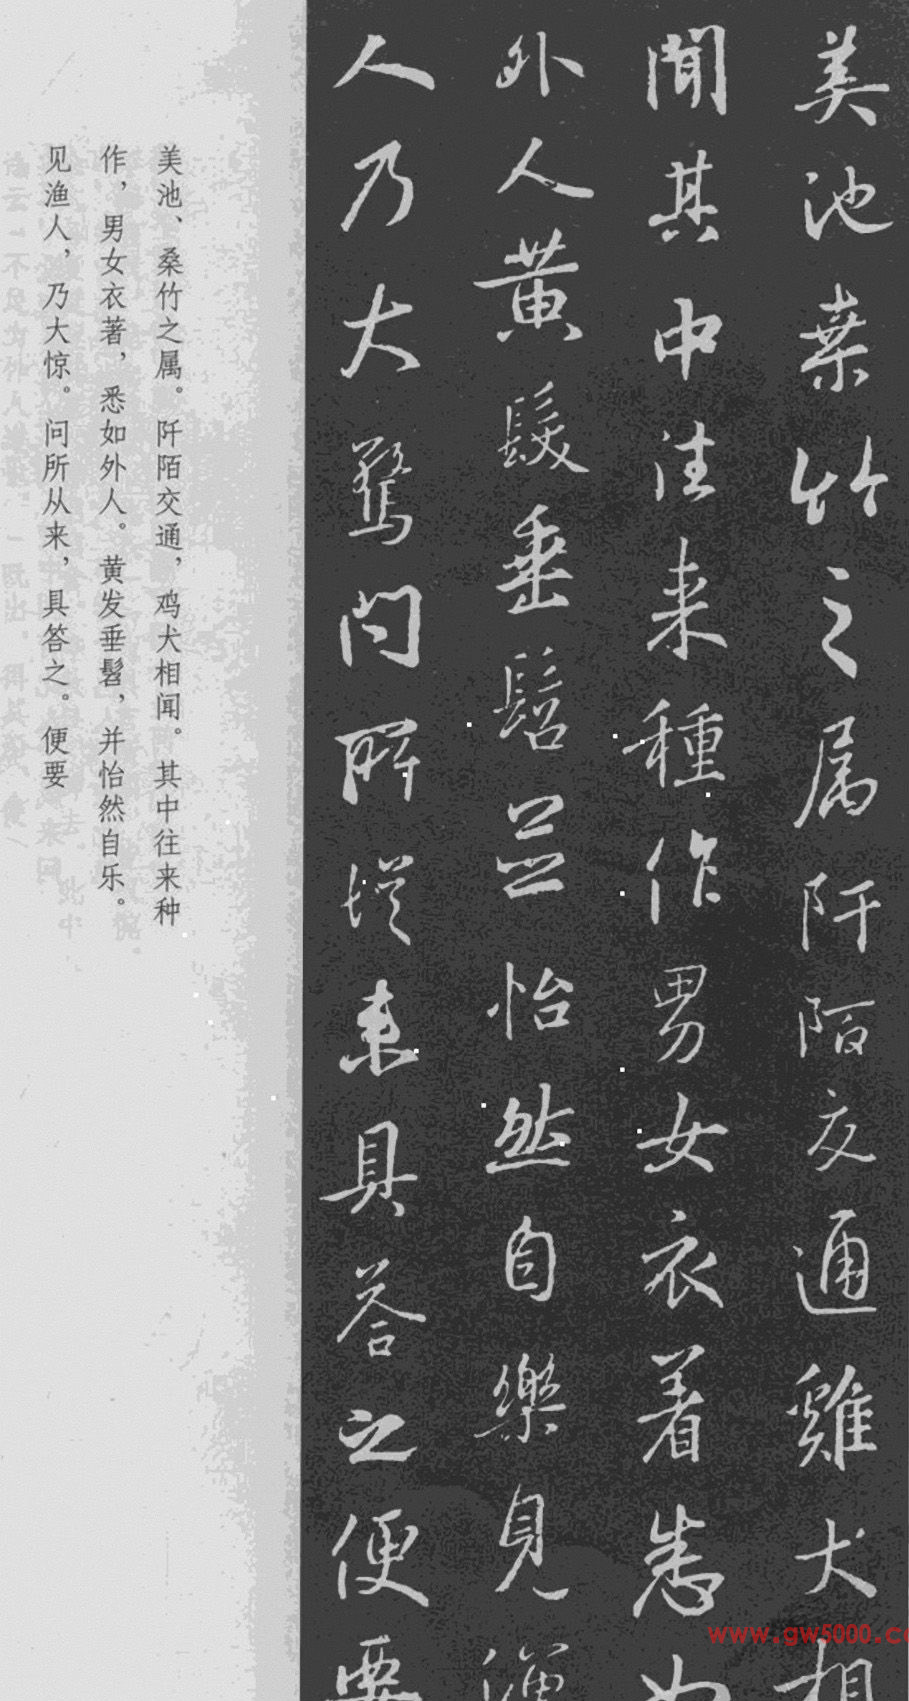 美池桑竹之属阡陌交通雞犬相
聞其中往来種作男女衣着悉如
外人黄髮垂髫並怡然自樂見漁
人乃大驚問所從来具答之便要
美池、桑竹之属。阡陌交通，鸡犬相闻。其中往来种
作，男女衣著，悉如外人。黄发垂髫，并怡然自乐。
见渔人，乃大惊。问所从来，具答之。便要